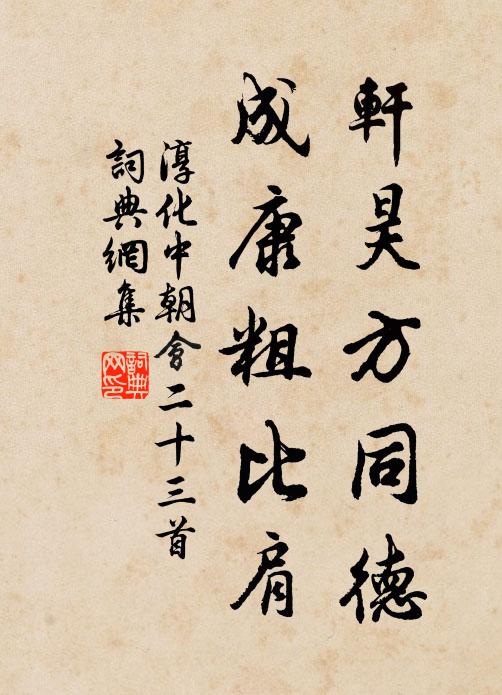 軒昊方同德
成康粗比肩
淳化中朝會二十三首
詞典網集
詞典網印